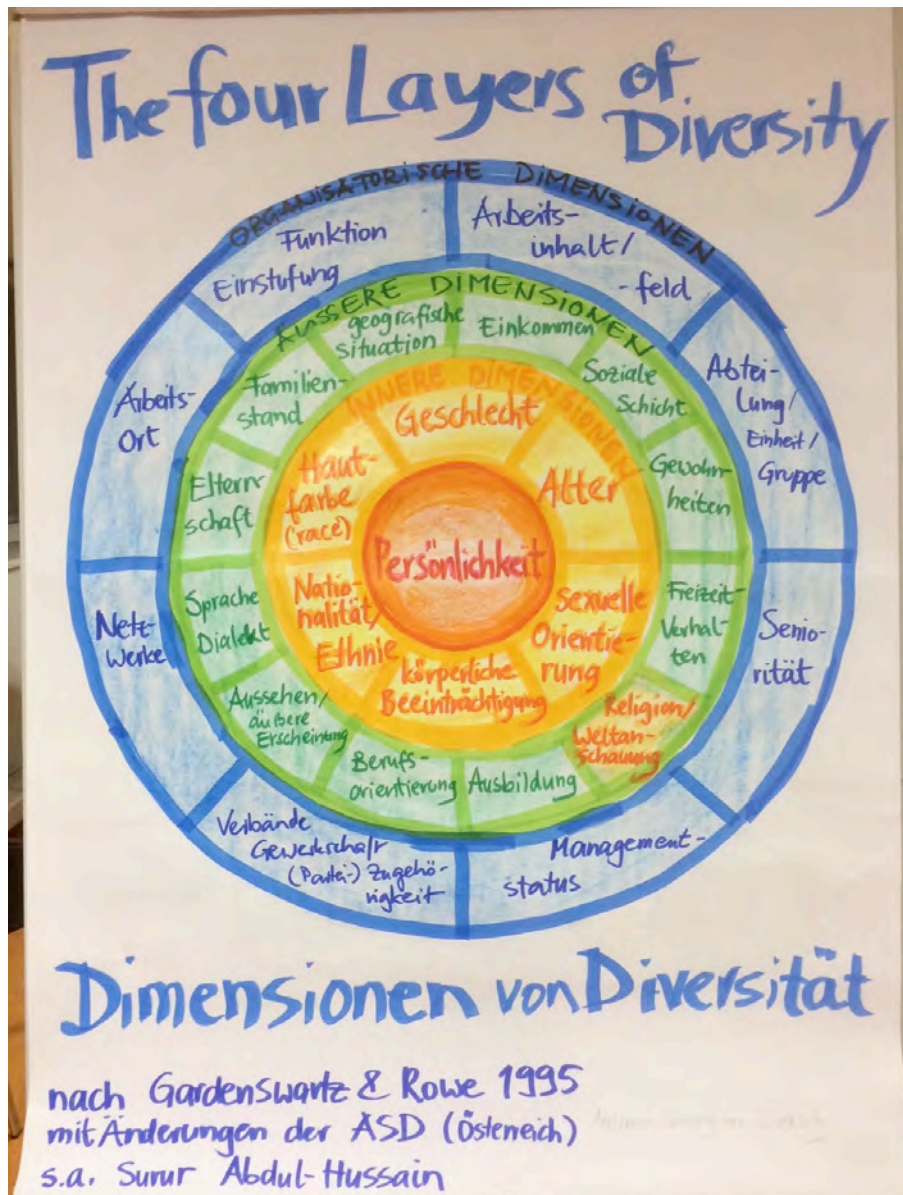 The four Layers of
Diversity
ORGANISATORISCHE DIMENSIONEN
Funktion
Einstufung
Arbeits-
inhalt/
-feld
Abtei-
lung/
Einheit/
Gruppe
Senio-
rität
Management-
status
Verbände
Gewerkschaft
(Partei-) Zugehö-
rigkeit
Netz-
werke
Arbeits-
Ort
ÄUSSERE DIMENSIONEN
geografische
situation
Einkommen
Soziale
Schicht
Gewohn-
heiten
Freizeit-
Verhal-
ten
Religion/
Weltan-
schauung
Ausbildung
Berufs-
orientierung
Aussehen/
äußere
Erscheinung
Sprache
Dialekt
Eltern-
schaft
Familien-
stand
INNERE DIMENSIONEN
Geschlecht
Alter
Sexuelle
Orientie-
rung
körperliche
Beeinträchtigung
Natio-
nalität/
Ethnie
Haut-
farbe
(race)
Persönlichkeit
Dimensionen von Diversität
nach Gardenswartz & Rowe 1995
mit Änderungen der ASD (Österreich)
s.a. Surur Abdul-Hussain